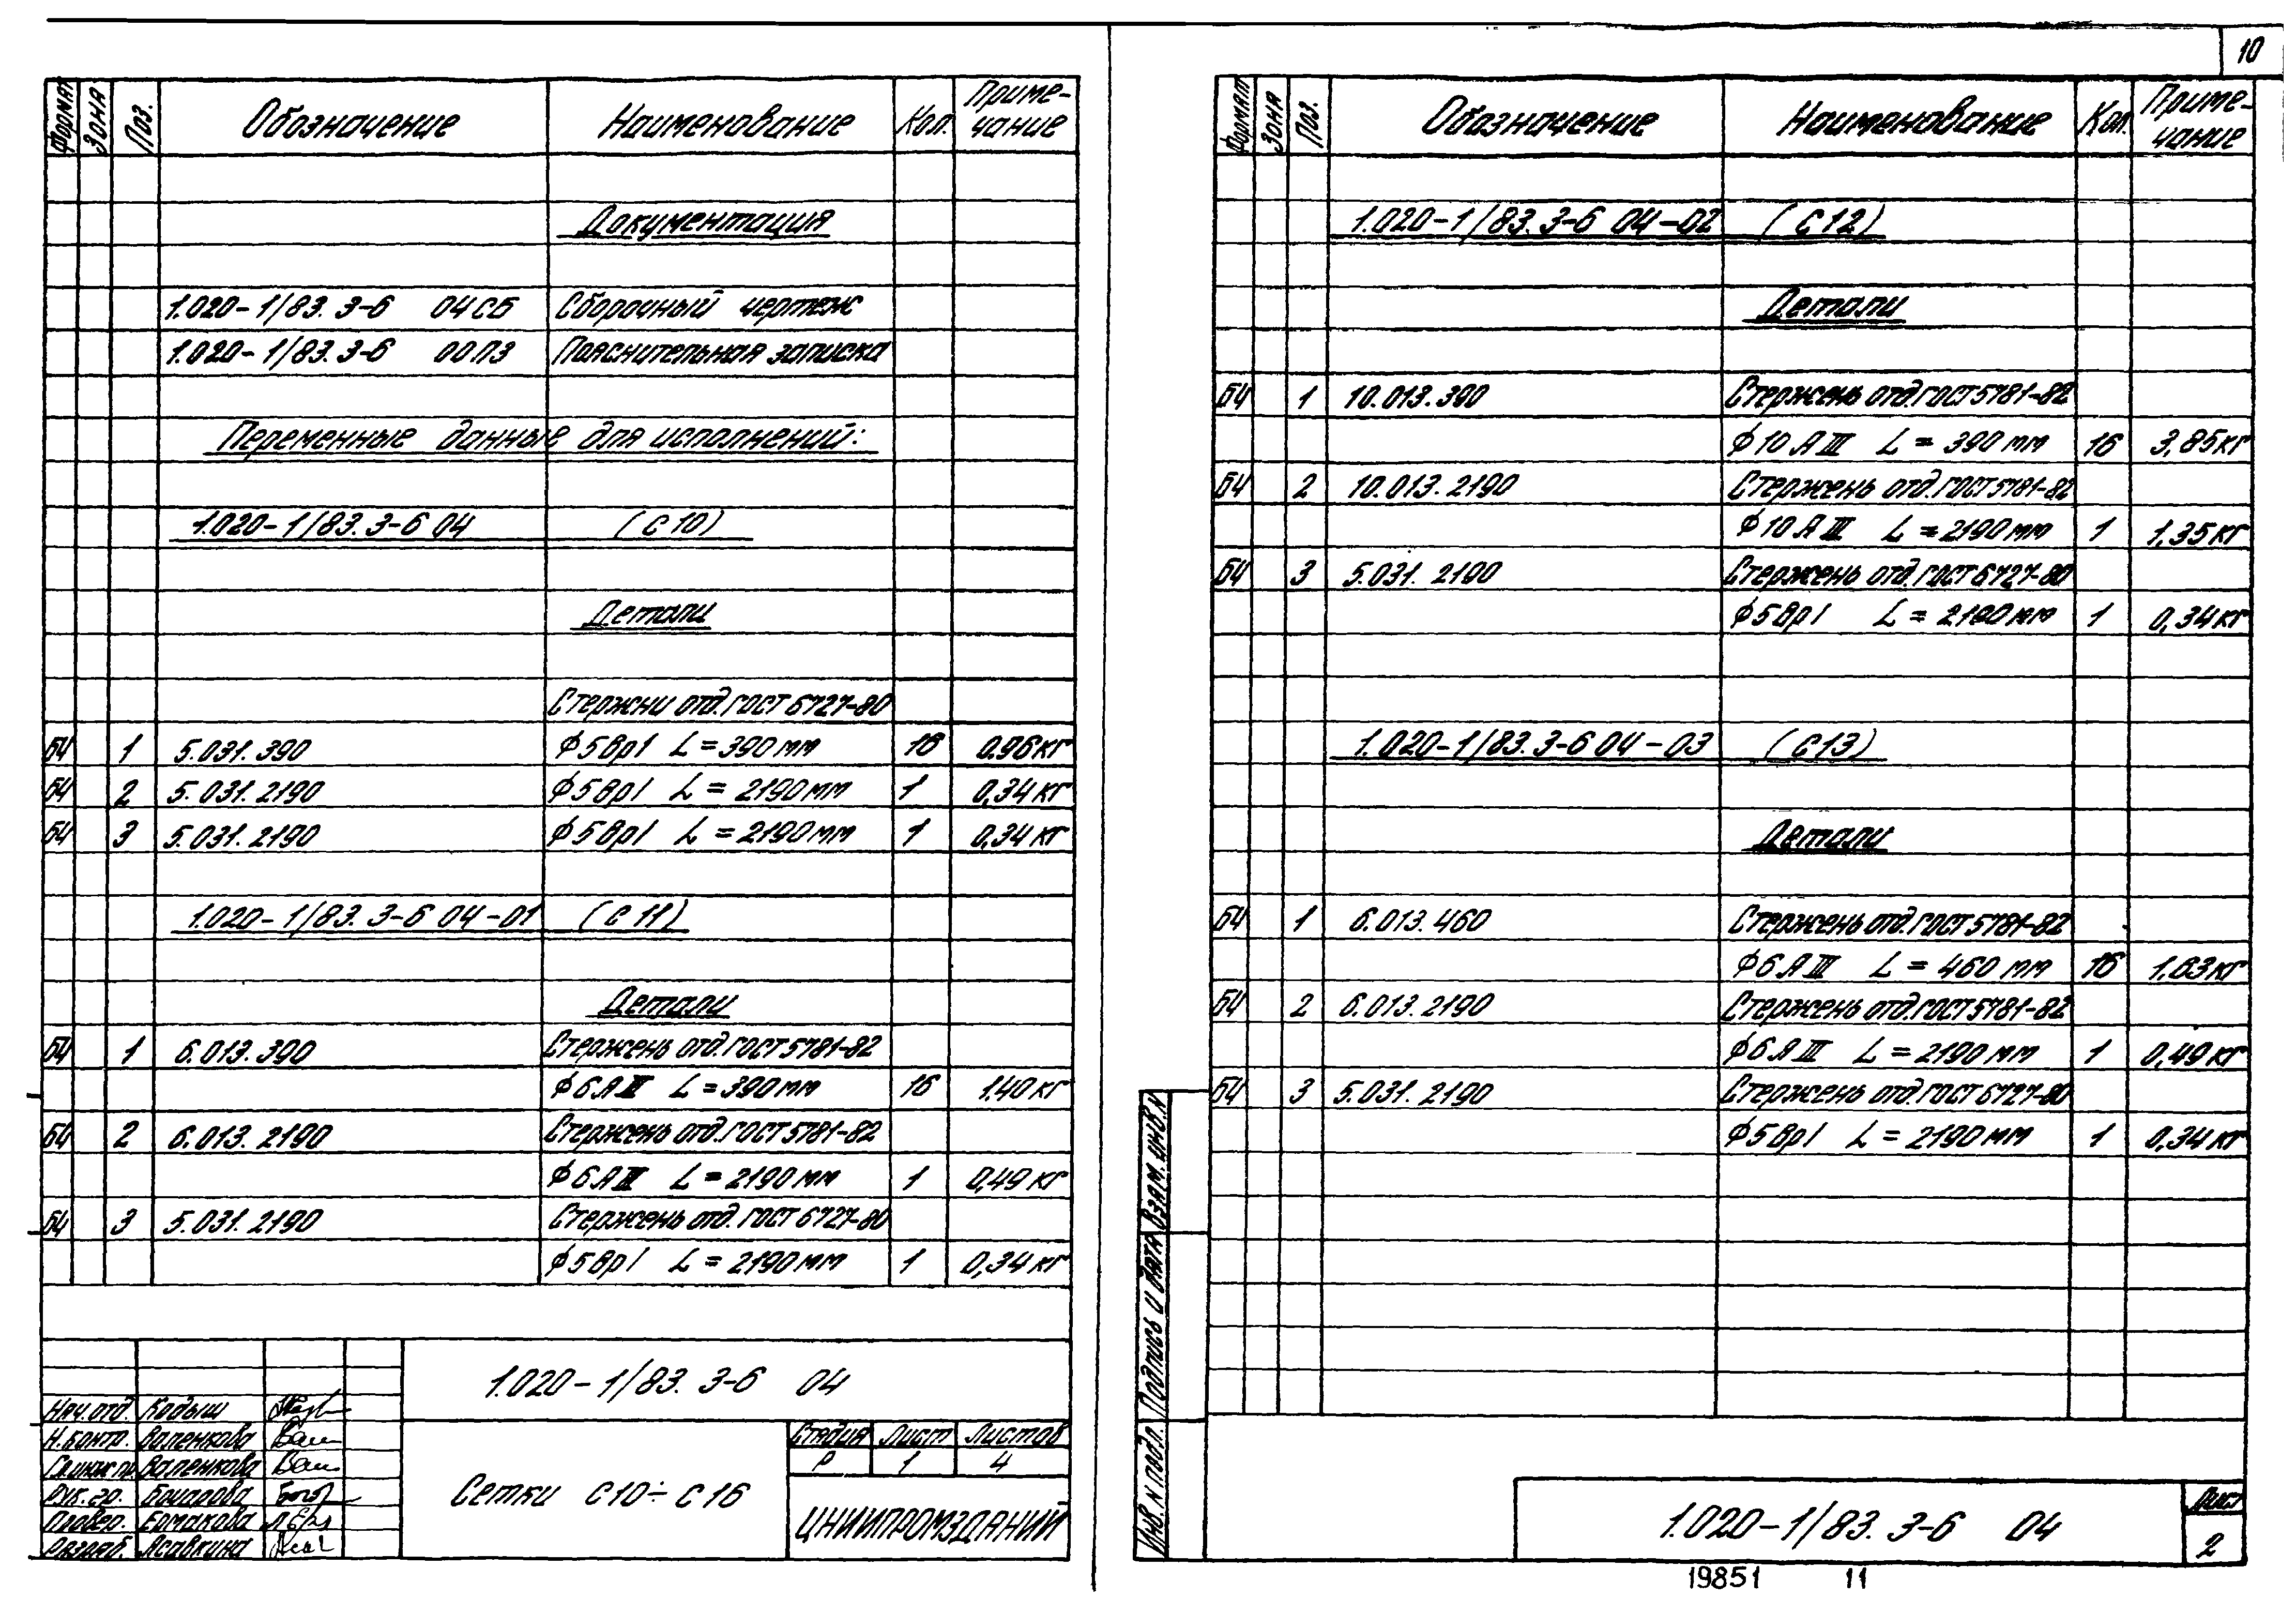 10
Формат Зона Поз. Обозначение Наименование Кол. Приме-
чание
Документация
1.020-1/83. 3-6 04СБ Сборочный чертеж
1.020-1/83. 3-6 00ПЗ Пояснительная записка
Переменные данные для исполнений:
1.020-1/83. 3-6 04 (С10)
Детали
Стержни отд. ГОСТ 6727-80
БЧ 1 5.031.390 ф5ВрI L=390мм 16 0.96кг
БЧ 2 5.031.2190 ф5ВрI L=2190мм 1 0,34кг
БЧ 3 5.031.2190 ф5ВрI L=2190мм 1 0,34кг
1.020-1/83. 3-6 04-01 (С11)
Детали
БЧ 1 6.013.390 Стержень отд. ГОСТ 5781-82
ф6АIII L=390мм 16 1.40кг
БЧ 2 6.013.2190 Стержень отд. ГОСТ 5781-82
ф6АIII L=2190мм 1 0,49кг
БЧ 3 5.031.2190 Стержень отд. ГОСТ 6727-80
ф5ВрI L=2190мм 1 0,34кг
1.020-1/83. 3-6 04
Нач.отд. Кодыш
Н.контр. Валенкова
Гл.инж.пр. Валенкова
Рук.гр. Бочарова
Провер. Ермакова
Разраб. Асавкина
Сетки С10÷С16
Стадия Лист Листов
Р 1 4
ЦНИИПРОМЗДАНИЙ
Формат Зона Поз. Обозначение Наименование Кол. Приме-
чание
1.020-1/83. 3-6 04-02 (С12)
Детали
БЧ 1 10.013.390 Стержень отд. ГОСТ 5781-82
ф10АIII L=390мм 16 3,85кг
БЧ 2 10.013.2190 Стержень отд. ГОСТ 5781-82
ф10АIII L=2190мм 1 1,35кг
БЧ 3 5.031.2190 Стержень отд. ГОСТ 6727-80
ф5ВрI L=2190мм 1 0,34кг
1.020-1/83. 3-6 04-03 (С13)
Детали
БЧ 1 6.013.460 Стержень отд. ГОСТ 5781-82
ф6АIII L=460мм 16 1.63кг
БЧ 2 6.013.2190 Стержень отд. ГОСТ 5781-82
ф6АIII L=2190мм 1 0,49кг
БЧ 3 5.031.2190 Стержень отд. ГОСТ 6727-80
ф5ВрI L=2190мм 1 0,34кг
Взам. инв. N
Подпись и дата
Инв. N подл.
1.020-1/83. 3-6 04
Лист
2
19851 11